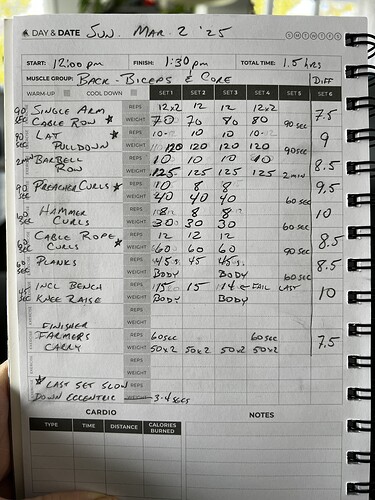 DAY & DATE SUN. MAR. 2 '25 S M T W T F S
START: 12:00 pm FINISH: 1:30 pm TOTAL TIME: 1.5 hrs
MUSCLE GROUP: BACK - BICEPS & CORE DIFF
WARM-UP COOL DOWN SET 1 SET 2 SET 3 SET 4 SET 5 SET 6
90 SEC SINGLE ARM REPS 12x2 12 12 12x2 7.5
CABLE ROW ☆ WEIGHT 70 70 80 80 90 sec
90 SEC LAT REPS 10 10 10 10 9
PULLDOWN WEIGHT 120 120 120 120 90sec
2min BARBELL REPS 10 10 10 10 8.5
ROW WEIGHT 125 125 125 125 2 min
90 SEC PREACHER CURLS ☆ REPS 10 8 8 9.5
WEIGHT 40 40 40 60 sec
60 SEC HAMMER REPS 8 8 8 10
CURLS WEIGHT 30 30 30 60 sec
60 SEC CABLE ROPE REPS 12 12 12 8.5
CURLS ☆ WEIGHT 60 60 60 90 sec
60 SEC PLANKS REPS 45s. 45 45s. 8.5
WEIGHT BODY BODY 60sec
45 SEC INCL BENCH REPS 15 15 14 ← FAIL LAST 10
KNEE RAISE WEIGHT BODY BODY
FINISHER
FARMERS REPS 60sec 60sec 7.5
CARRY WEIGHT 50x2 50x2 50x2 50x2
☆ LAST SET SLOW REPS
DOWN ECCENTRIC WEIGHT 3-4 secs
CARDIO NOTES
TYPE TIME DISTANCE CALORIES BURNED